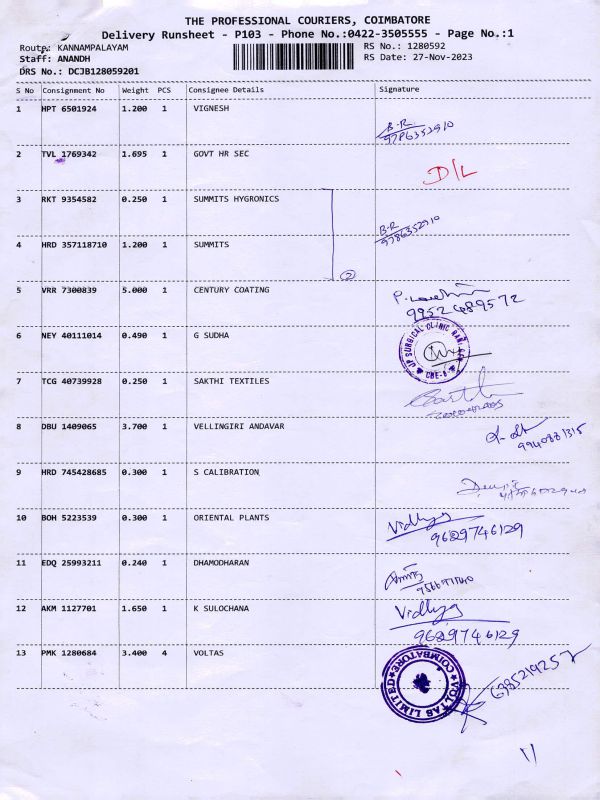 THE PROFESSIONAL COURIERS, COIMBATORE
Delivery Runsheet - P103 - Phone No.:0422-3505555 - Page No.:1
Route: KANNAMPALAYAM
RS No.: 1280592
Staff: ANANDH
RS Date: 27-Nov-2023
DRS No.: DCJB128059201
S No Consignment No Weight PCS Consignee Details Signature
1 HPT 6501924 1.200 1 VIGNESH
B.R.
9786352910
2 TVL 1769342 1.695 1 GOVT HR SEC
D/L
3 RKT 9354582 0.250 1 SUMMITS HYGRONICS
B.R
9786352910
4 HRD 357118710 1.200 1 SUMMITS
2
5 VRR 7300839 5.000 1 CENTURY COATING
9952489572
6 NEY 40111014 0.490 1 G SUDHA
JP SURGICAL CLINIC
CBE-6
7 TCG 40739928 0.250 1 SAKTHI TEXTILES
8 DBU 1409065 3.700 1 VELLINGIRI ANDAVAR
9940881315
9 HRD 745428685 0.300 1 S CALIBRATION
10 BOH 5223539 0.300 1 ORIENTAL PLANTS
Vidhya
9629746129
11 EDQ 25993211 0.240 1 DHAMODHARAN
12 AKM 1127701 1.650 1 K SULOCHANA
Vidhya
9629746129
13 PMK 1280684 3.400 4 VOLTAS
VOLTAS LIMITED
COIMBATORE
6385219257
11